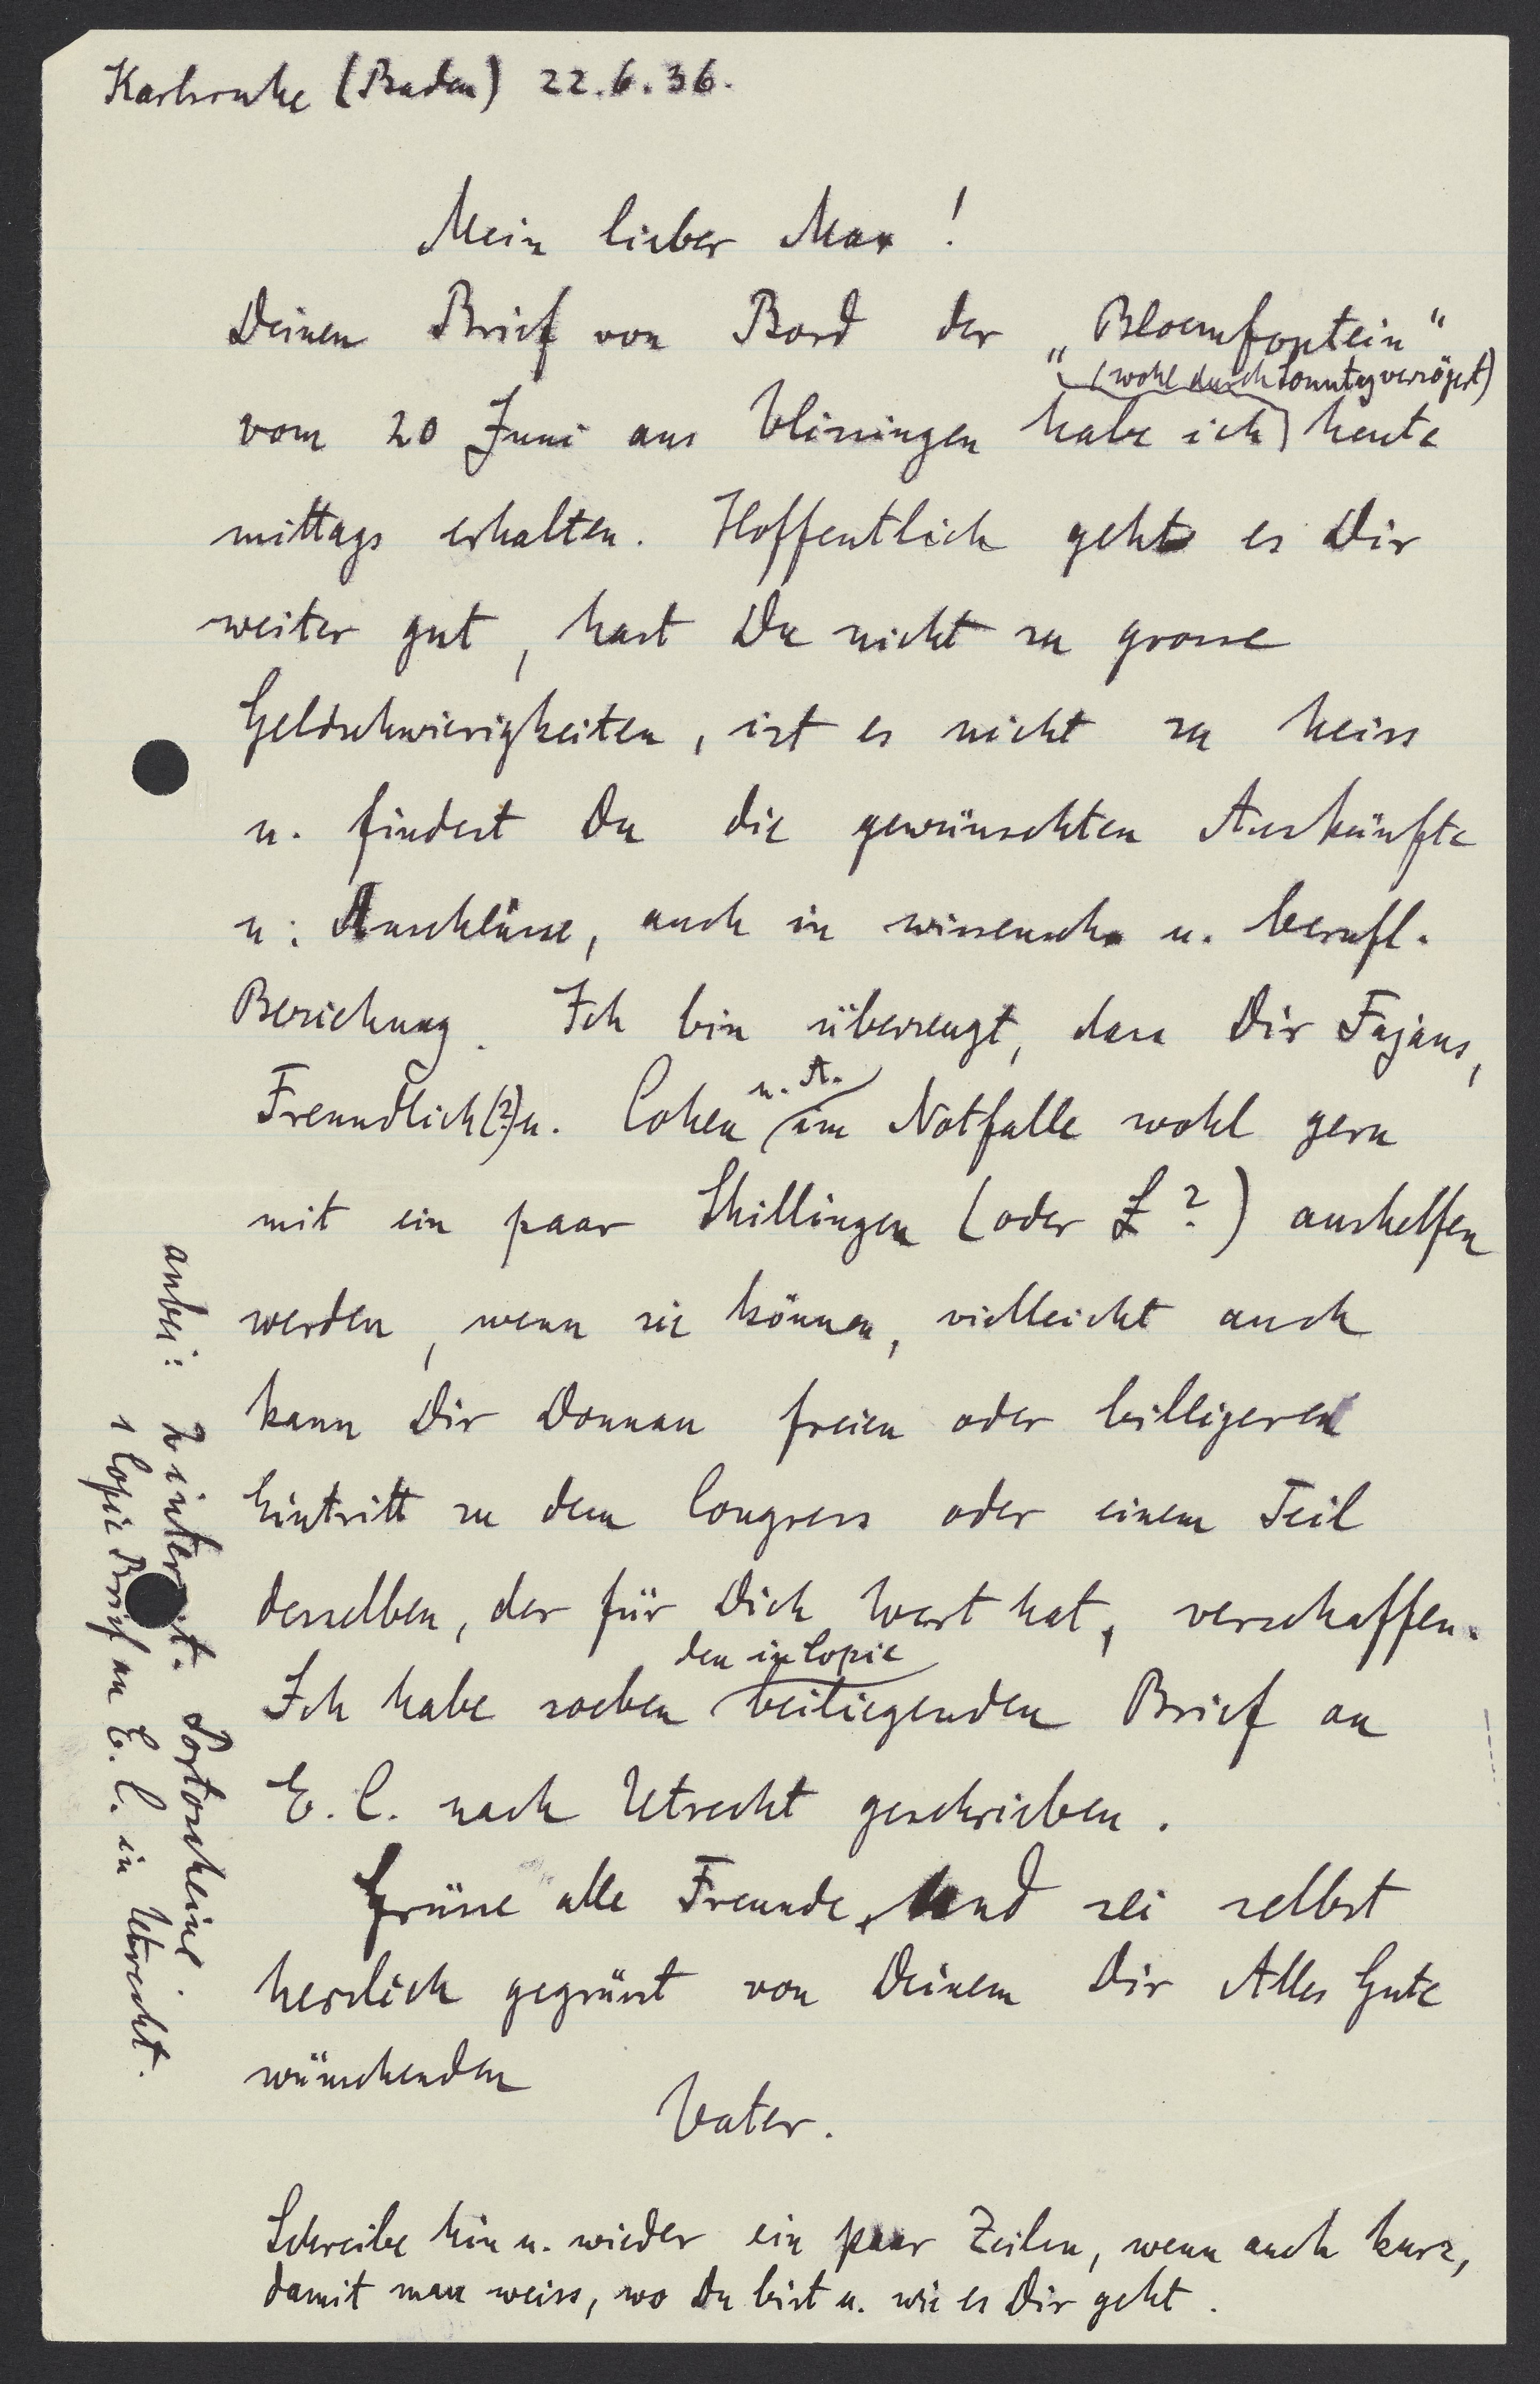 Karlsruhe (Baden) 22.6.36.
Mein lieber Max!
Deinen Brief von Bord der „Bloemfontein“
(wohl durch Sonntag verzögert)
vom 20 Juni aus Vlissingen habe ich heute
mittags erhalten. Hoffentlich geht es Dir
weiter gut, hast Du nicht zu grosse
Geldschwierigkeiten, ist es nicht zu heiss
u. findest Du die gewünschten Auskünfte
u. Anschlüsse, auch in wissensch. u. berufl.
Beziehung. Ich bin überzeugt, dass Dir Fajans,
Freundlich(?) u. Cohen u. A. im Notfalle wohl gern
mit ein paar Shillingen (oder £?) aushelfen
werden, wenn sie können, vielleicht auch
kann Dir Donnan freien oder billigeren
Eintritt zu dem Congress oder einem Teil
desselben, der für Dich Wert hat, verschaffen.
Ich habe soeben den in Copie beiliegenden Brief an
E. C. nach Utrecht geschrieben.
Grüsse alle Freunde, und sei selbst
herzlich gegrüsst von Deinem Dir Alles Gute
wünschenden
Vater.
Schreibe hin u. wieder ein paar Zeilen, wenn auch kurz,
damit man weiss, wo Du bist u. wie es Dir geht.
anbei: 2 internat. Portoscheine
1 Copie Brief an E. C. in Utrecht.